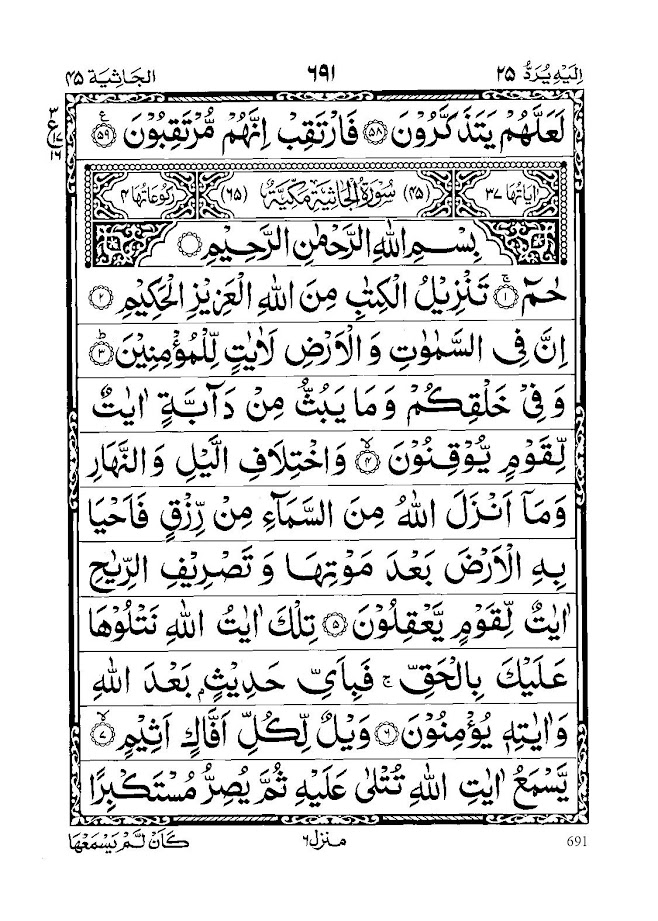 اِلَيْهِ يُرَدُّ ۲۵ ۶۹۱ الجاثية ۴۵
لَعَلَّهُمْ يَتَذَكَّرُوْنَ ۵۸ فَارْتَقِبْ اِنَّهُمْ مُّرْتَقِبُوْنَ ۵۹ ع
۳ ع ۱۷ ۱۶
اٰيَاتُهَا ۳۷ (۴۵) سُوْرَةُ الْجَاثِيَةِ مَكِّيَّةٌ (۶۵) رُكُوْعَاتُهَا ۴
بِسْمِ اللهِ الرَّحْمٰنِ الرَّحِيْمِ
حٰمٓ ۱ ج تَنْزِيْلُ الْكِتٰبِ مِنَ اللهِ الْعَزِيْزِ الْحَكِيْمِ ۲
اِنَّ فِى السَّمٰوٰتِ وَ الْاَرْضِ لَاٰيٰتٍ لِّلْمُؤْمِنِيْنَ ۳ ط
وَ فِىْ خَلْقِكُمْ وَ مَا يَبُثُّ مِنْ دَآبَّةٍ اٰيٰتٌ
لِّقَوْمٍ يُّوْقِنُوْنَ ۴ لا وَ اخْتِلَافِ الَّيْلِ وَ النَّهَارِ
وَ مَآ اَنْزَلَ اللهُ مِنَ السَّمَآءِ مِنْ رِّزْقٍ فَاَحْيَا
بِهِ الْاَرْضَ بَعْدَ مَوْتِهَا وَ تَصْرِيْفِ الرِّيٰحِ
اٰيٰتٌ لِّقَوْمٍ يَّعْقِلُوْنَ ۵ تِلْكَ اٰيٰتُ اللهِ نَتْلُوْهَا
عَلَيْكَ بِالْحَقِّ ج فَبِاَىِّ حَدِيْثٍۭ بَعْدَ اللهِ
وَ اٰيٰتِهٖ يُؤْمِنُوْنَ ۶ وَيْلٌ لِّكُلِّ اَفَّاكٍ اَثِيْمٍ ۷ لا
يَّسْمَعُ اٰيٰتِ اللهِ تُتْلٰى عَلَيْهِ ثُمَّ يُصِرُّ مُسْتَكْبِرًا
691 منزل ۶ كَاَنْ لَّمْ يَسْمَعْهَا